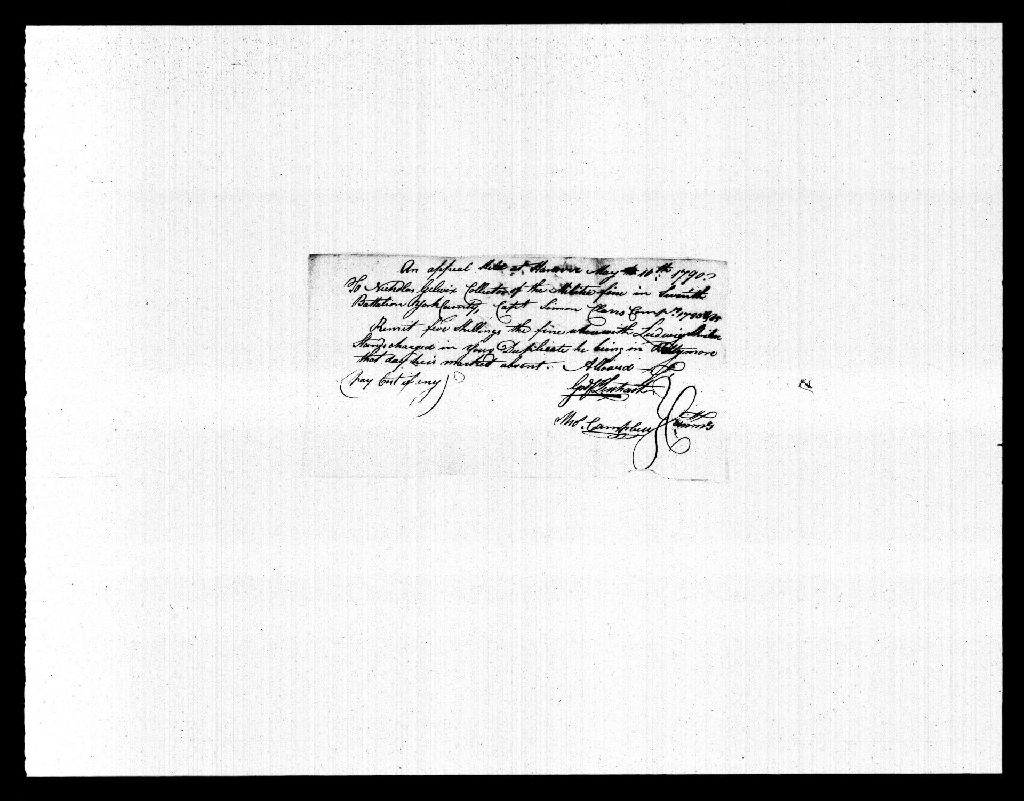 An appeal Held at Hanover May the 11th 1790
To Nicholas Gelwix Collector of the Militia fine in Seventh
Battalion York County, Capt Simon Clars Comp.
Remit five Shillings the fine wherewith Ludwig
Stands charged in your Duplicate he being in
that day he is marked absent. Allowed
(Pay Cost if eny)
Tho.s Campbell